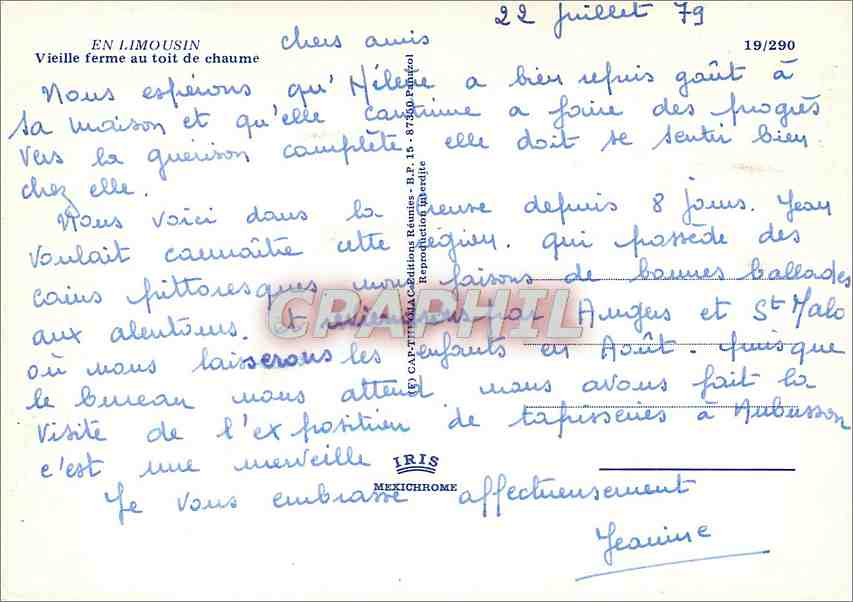 22 Juillet 79
EN LIMOUSIN
Vieille ferme au toit de chaume
chers amis
19/290
Nous espérons qu'Hélène a bien repris goût à
sa maison et qu'elle continue a faire des progrès
vers la guérison complète elle doit se sentir bien
chez elle.
Nous voici dans la Creuse depuis 8 jours. Jean
voulait connaître cette région. qui possède des
coins pittoresques nous faisons de bonnes ballades
aux alentours. et reviendrons par Angers et St Malo
où nous laisserons les enfants en Août. puisque
le bureau nous attend nous avons fait la
visite de l'exposition de tapisseries à Aubusson
c'est une merveille
Je vous embrasse affectueusement
Jeanine
(E) CAP-THEOJAC-Editions Réunies - B.P. 15 - 87350 Panazol
Reproduction interdite
IRIS
MEXICHROME
CPAPHIL